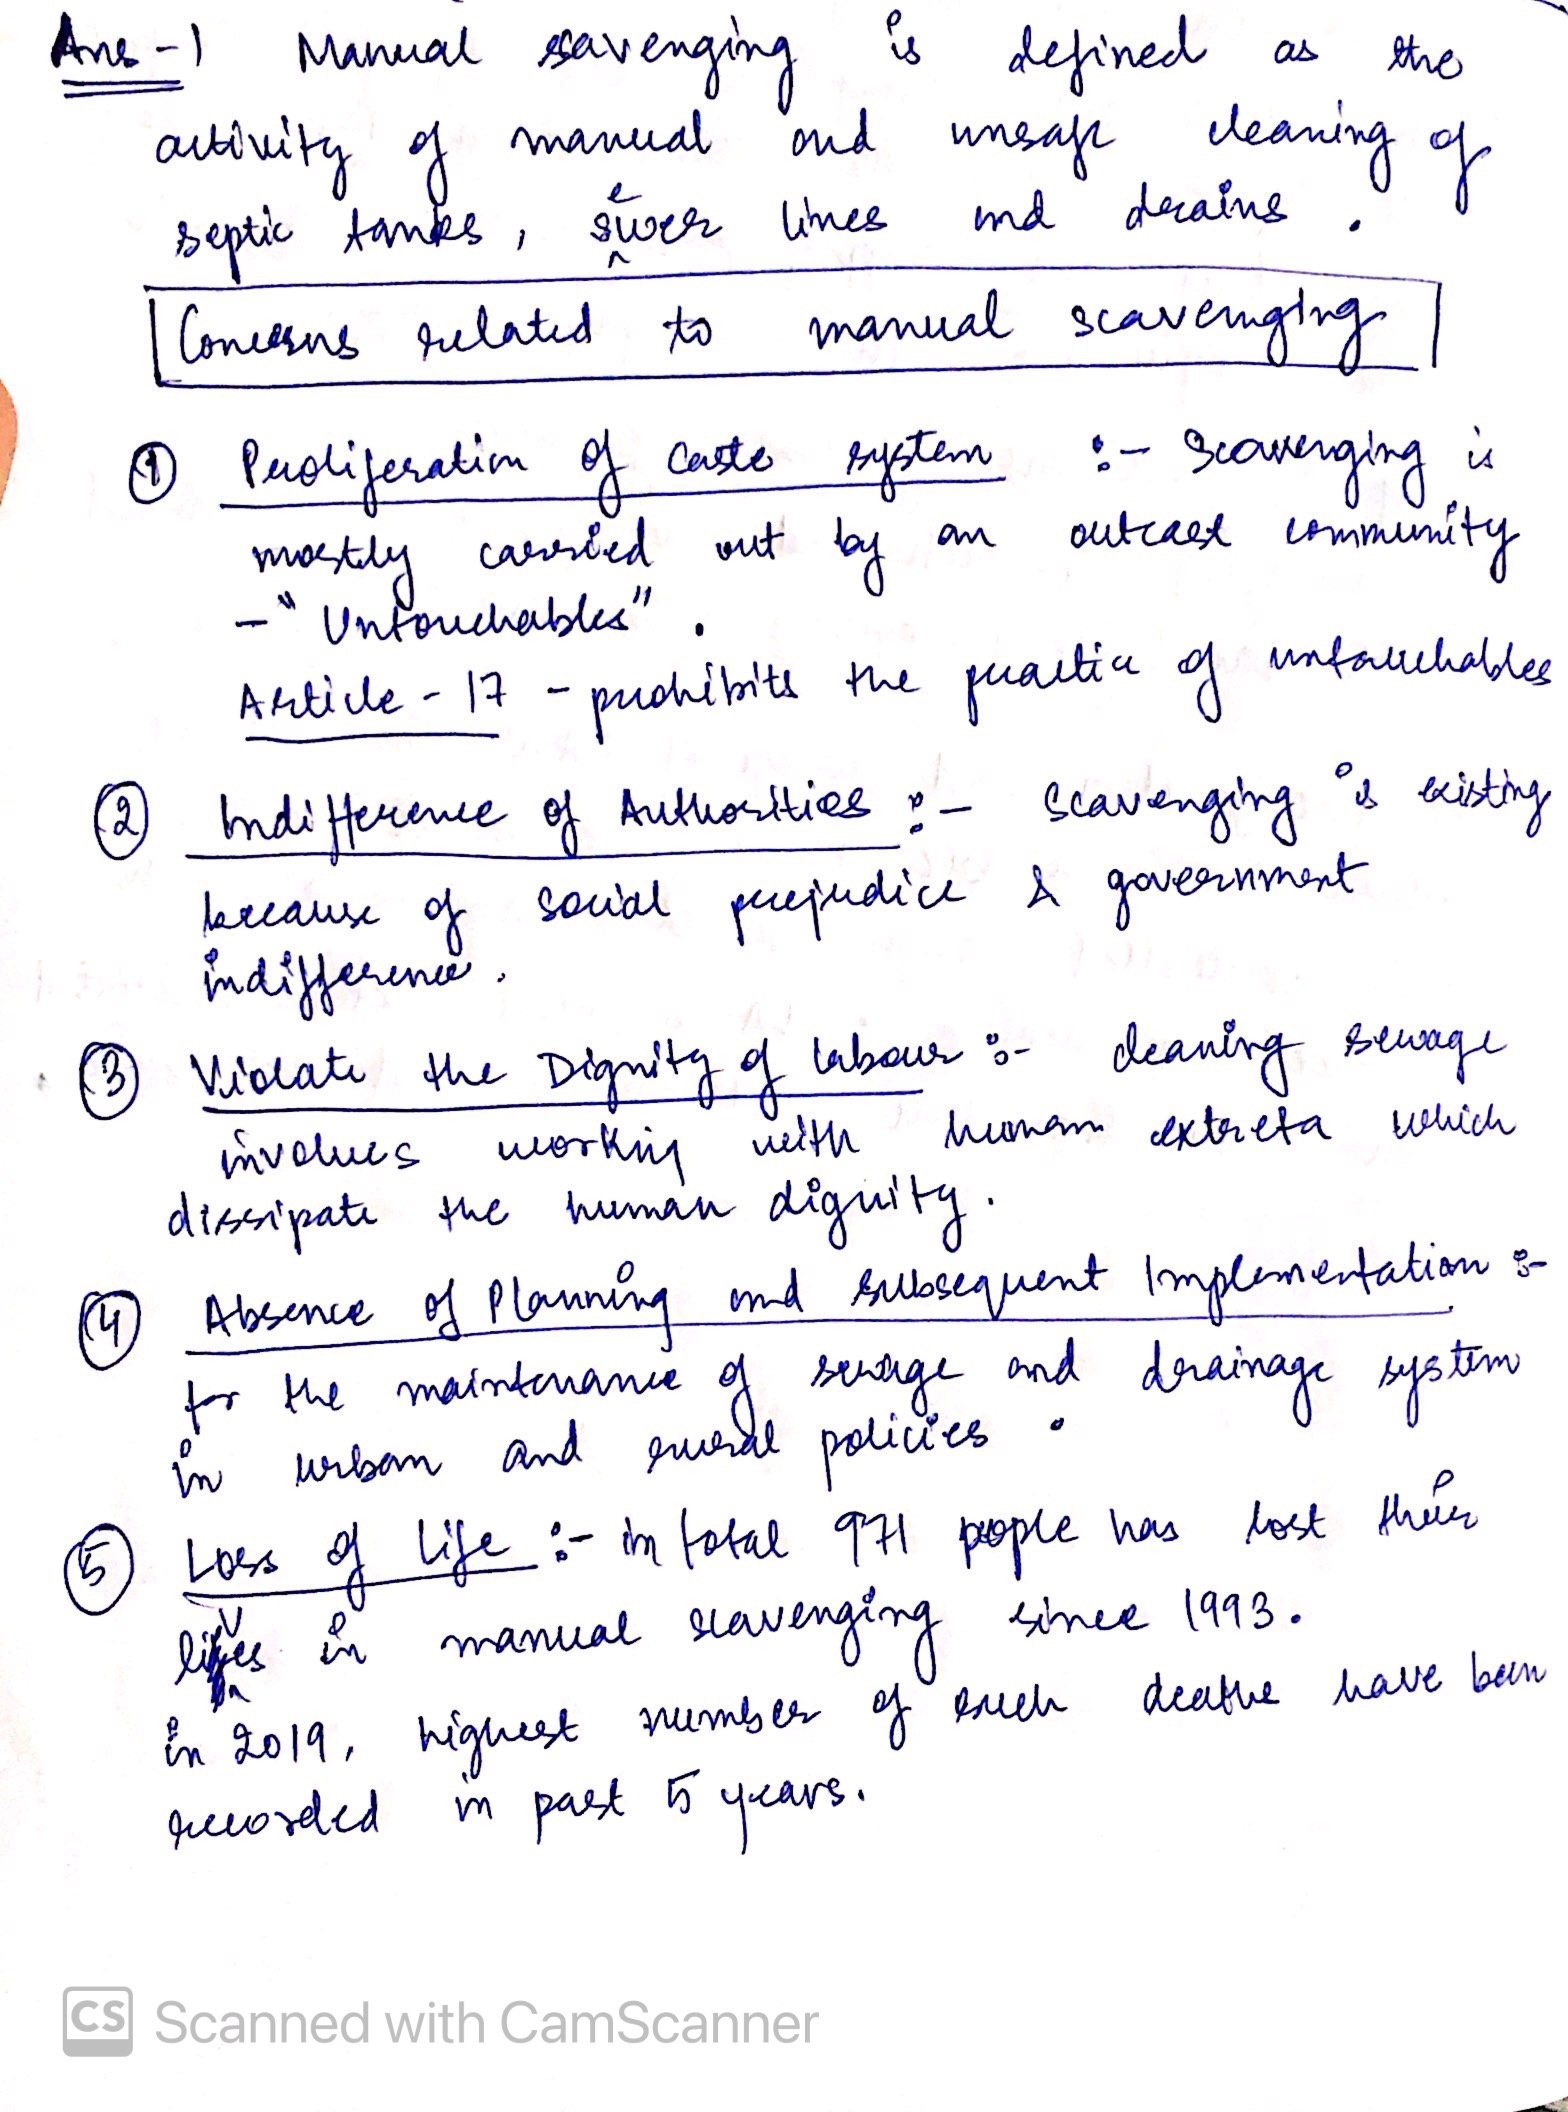 Ans-1 Manual scavenging is defined as the
activity of manual and unsafe cleaning of
septic tanks, sewer lines and drains.
Concerns related to manual scavenging
① Proliferation of caste system :- Scavenging is
mostly carried out by an outcast community
- "Untouchables".
Article-17 - prohibits the practice of untouchables
② Indifference of Authorities :- Scavenging is existing
because of social prejudice & government
indifference.
③ Violate the Dignity of labour :- cleaning sewage
involves working with human extreta which
dissipate the human dignity.
④ Absence of Planning and subsequent Implementation :-
for the maintenance of sewage and drainage system
in urban and rural policies.
⑤ Loss of life :- in total 971 people has lost their
lives in manual scavenging since 1993.
in 2019, highest number of such deaths have been
recorded in past 5 years.
CS Scanned with CamScanner